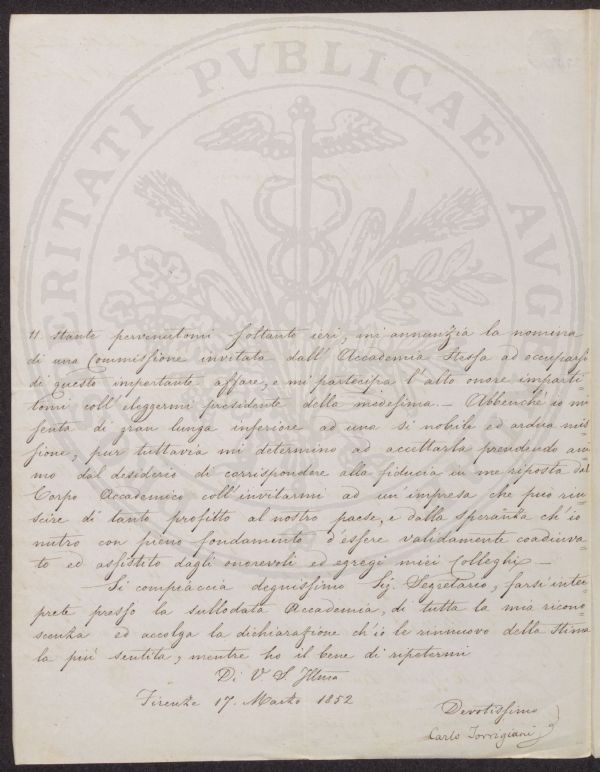 PROSPERITATI PVBLICAE AVGENDAE
11. stante pervenutomi soltanto ieri, mi annunzia la nomina
di una Commissione invitata dall' Accademia stessa ad occuparsi
di questo importante affare, e mi partecipa l'alto onore imparti=
tomi coll' eleggermi presidente della medesima. — Abbenchè io mi
senta di gran lunga inferiore ad una sì nobile ed ardua mis=
sione, pur tuttavia mi determino ad accettarla prendendo ani=
mo dal desiderio di corrispondere alla fiducia in me riposta dal
Corpo Accademico coll' invitarmi ad un' impresa che può riu=
scire di tanto profitto al nostro paese, e dalla speranza ch' io
nutro con pieno fondamento d'essere validamente coadiuva=
to ed assistito dagli onorevoli ed egregi miei Colleghi —
Si compiaccia degnissimo Sig. Segretario, farsi inter=
prete presso la sullodata Accademia, di tutta la mia ricono=
scenza ed accolga la dichiarazione ch' io le rinnuovo della stima
la più sentita, mentre ho il bene di ripetermi
Di V S Illma
Firenze 17. Marzo 1852
Devotissimo
Carlo Torrigiani